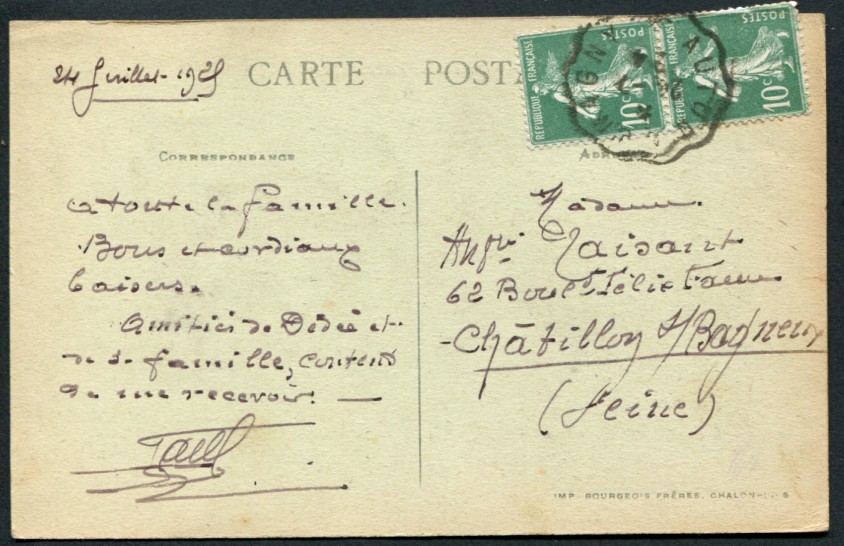 24 Juillet 1925
CARTE POSTA
RÉPUBLIQUE FRANÇAISE POSTES 10c
RÉPUBLIQUE FRANÇAISE POSTES 10c
CORRESPONDANCE
a toute la famille.
Bons et cordiaux
baisers.
Amitiés de Dédée et
de sa famille, contents
de me recevoir. —
Paul
Madame
Maisant
62 Boulᵗ Félix Faure
-Châtillon s/Bagneux
(Seine)
IMP. BOURGEOIS FRÈRES, CHALON-S-S